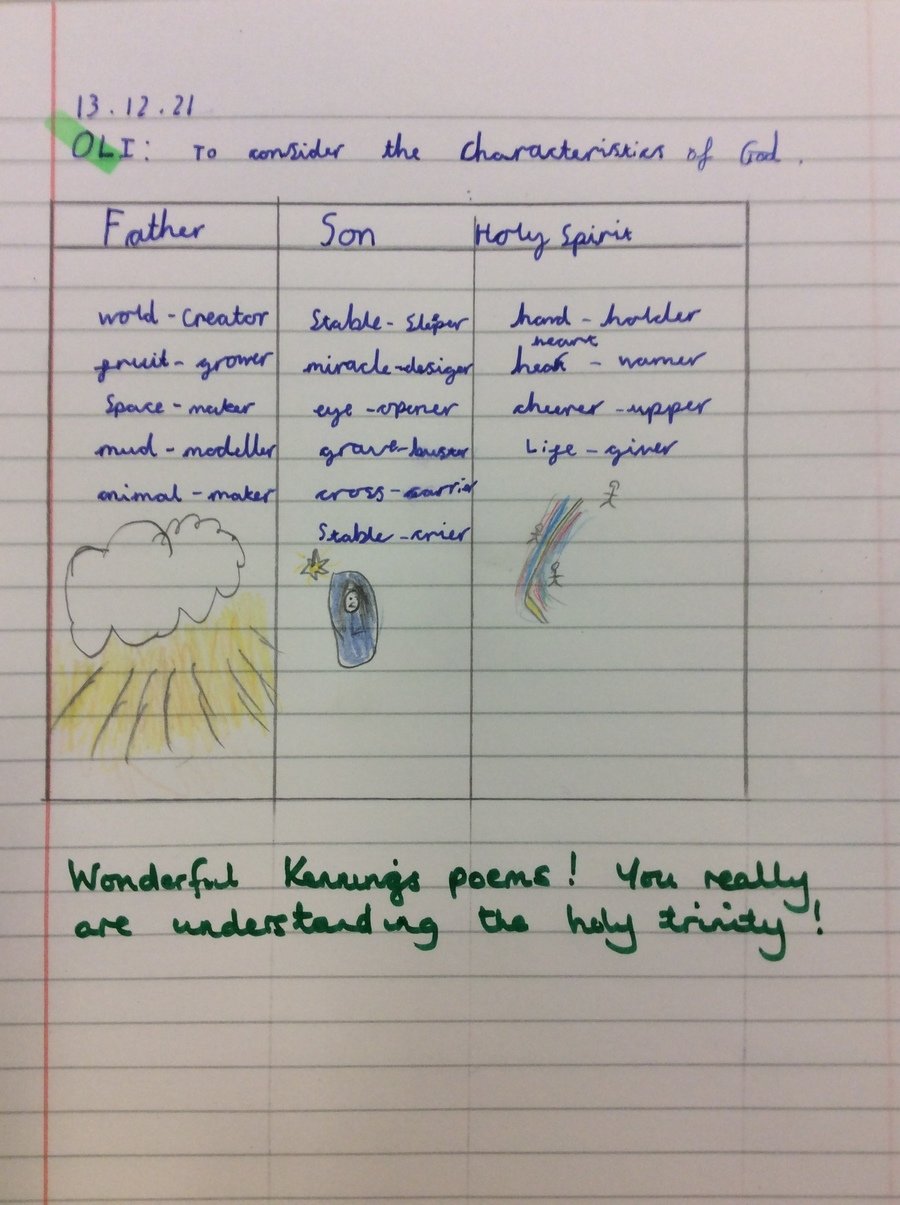 13.12.21
OLI: To consider the characteristics of God.
Father Son Holy Spirit
world-creator Stable-sleiper hand-holder
heart
fruit-grower miracle-desiger heat-warmer
Space-maker eye-opener cheerer-upper
mud-modeller grave-buster Life-giver
animal-maker cross-carrier
Stable-crier
Wonderful Kennings poems! You really
are understanding the holy trinity!